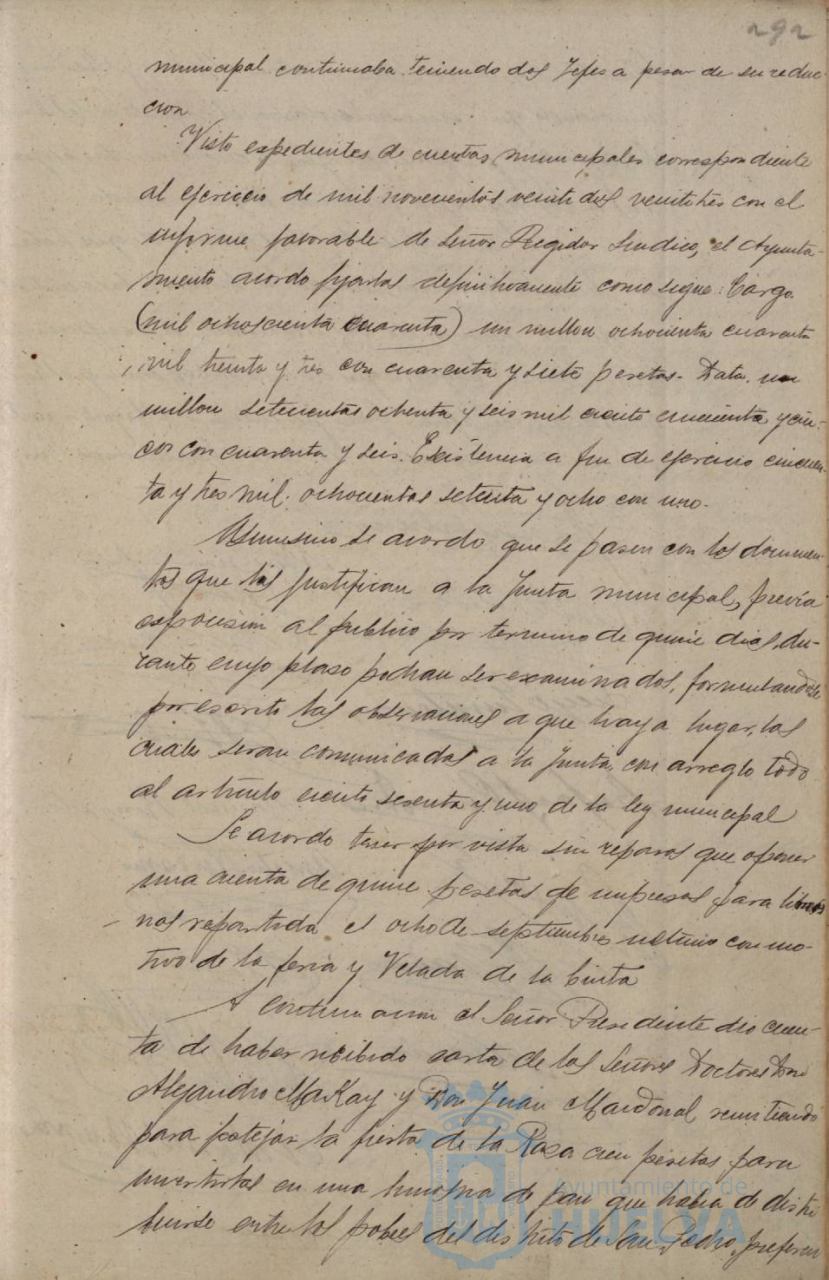 292
municipal continuaba teniendo dos Jefes a pesar de su reduc-
cion
Visto expedientes de cuentas municipales correspondiente
al ejercicio de mil novecientos veinte dos veintitres con el
informe favorable de Señor Regidor Sindico, el Ayunta-
miento acordo fijarlas definitivamente como sigue: Cargo
(mil ochocienta cuarenta) un millon ochocienta cuarenta
mil treinta y tres con cuarenta y siete pesetas. Data. un
millon setecientas ochenta y seis mil ciento cincuenta y cin-
co con cuarenta y seis. Existencia a fin de ejercicio cincuen-
ta y tres mil ochocientas setenta y ocho con uno.
Asimismo se acordo que se pasen con los documen-
tos que las justifican a la Junta municipal, previa
exposicion al publico por termino de quince dias, du-
rante cuyo plaso podran ser examinados, formulandose
por escrito las observaciones a que haya lugar, las
cuales seran comunicadas a la Junta, con arreglo todo
al articulo ciento sesenta y uno de la ley municipal
Se acordo tener por vista sin reparos que oponer
una cuenta de quince pesetas de impresos para limos
nas repartida el ocho de septiembre ultimo con mo-
tivo de la feria y Velada de la Cinta
A continuacion el Señor Presidente dio cuen-
ta de haber recibido carta de los Señores Doctores Don
Alejandro McKay y Don Juan Macdonal remitiendo
para festejar la fiesta de la Raza cien pesetas para
invertirlas en una limosna de pan que habia de distri
buirse entre los pobres del distrito de San Pedro, preferen
Ayuntamiento de
HUELVA